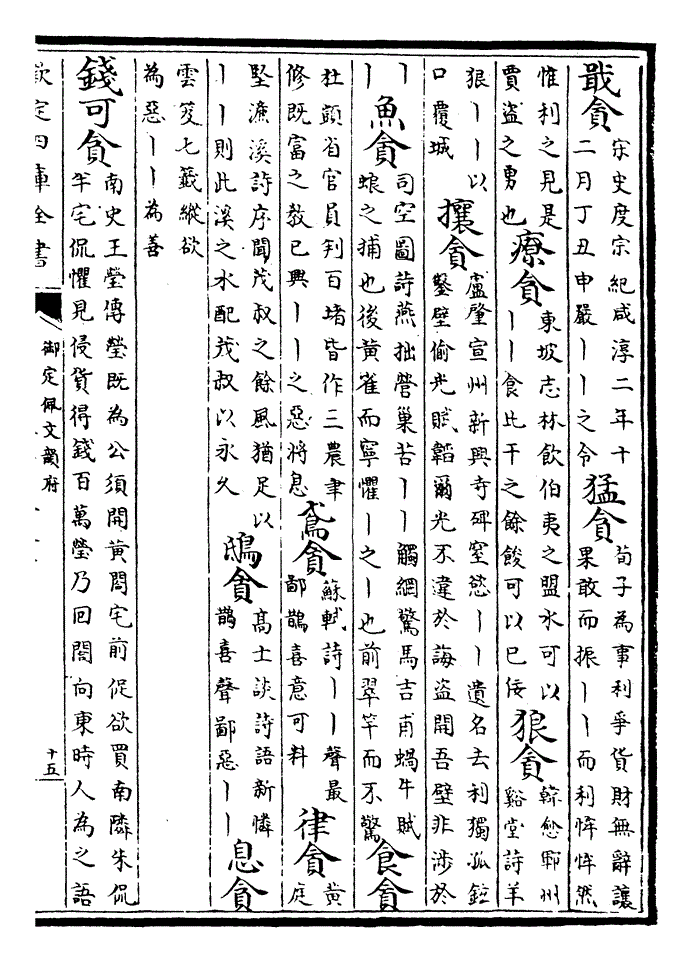 戢貪
宋史度宗紀咸淳二年十
二月丁丑申嚴丨丨之令
猛貪
荀子為事利爭貨財無辭讓
果敢而振丨丨而利恈恈然
惟利之見是
賈盜之勇也
療貪
東坡志林飲伯夷之盟水可以
丨丨食比干之餘餕可以已佞
狼貪
韓愈鄆州
谿堂詩羊
狠丨丨以
口覆城
攘貪
盧肇宣州新興寺碑窒慾丨丨遺名去利獨孤鉉
鑿壁偷光賦韜爾光不違於誨盜開吾壁非涉於
丨
丨
魚貪
司空圖詩燕拙營巢苦丨丨觸網驚馬吉甫蝸牛賦
螂之捕也後黃雀而寧懼丨之丨也前翠竿而不驚
食貪
杜顗省官員判百堵皆作三農聿
修既富之教已興丨丨之惡將息
鳶貪
蘇軾詩丨丨聲最
鄙鵲喜意可料
律貪
黃
庭
堅濂溪詩序聞茂叔之餘風猶足以
丨丨則此溪之水配茂叔以永久
鴟貪
高士談詩語新憐
鵲喜聲鄙惡丨丨
息貪
雲笈七籤縱欲
為惡丨丨為善
錢可貪
南史王瑩傳瑩既為公須開黃閤宅前促欲買南隣朱侃
半宅侃懼見侵貨得錢百萬瑩乃回閤向東時人為之語
欽定四庫全書
御定佩文韻府
十五